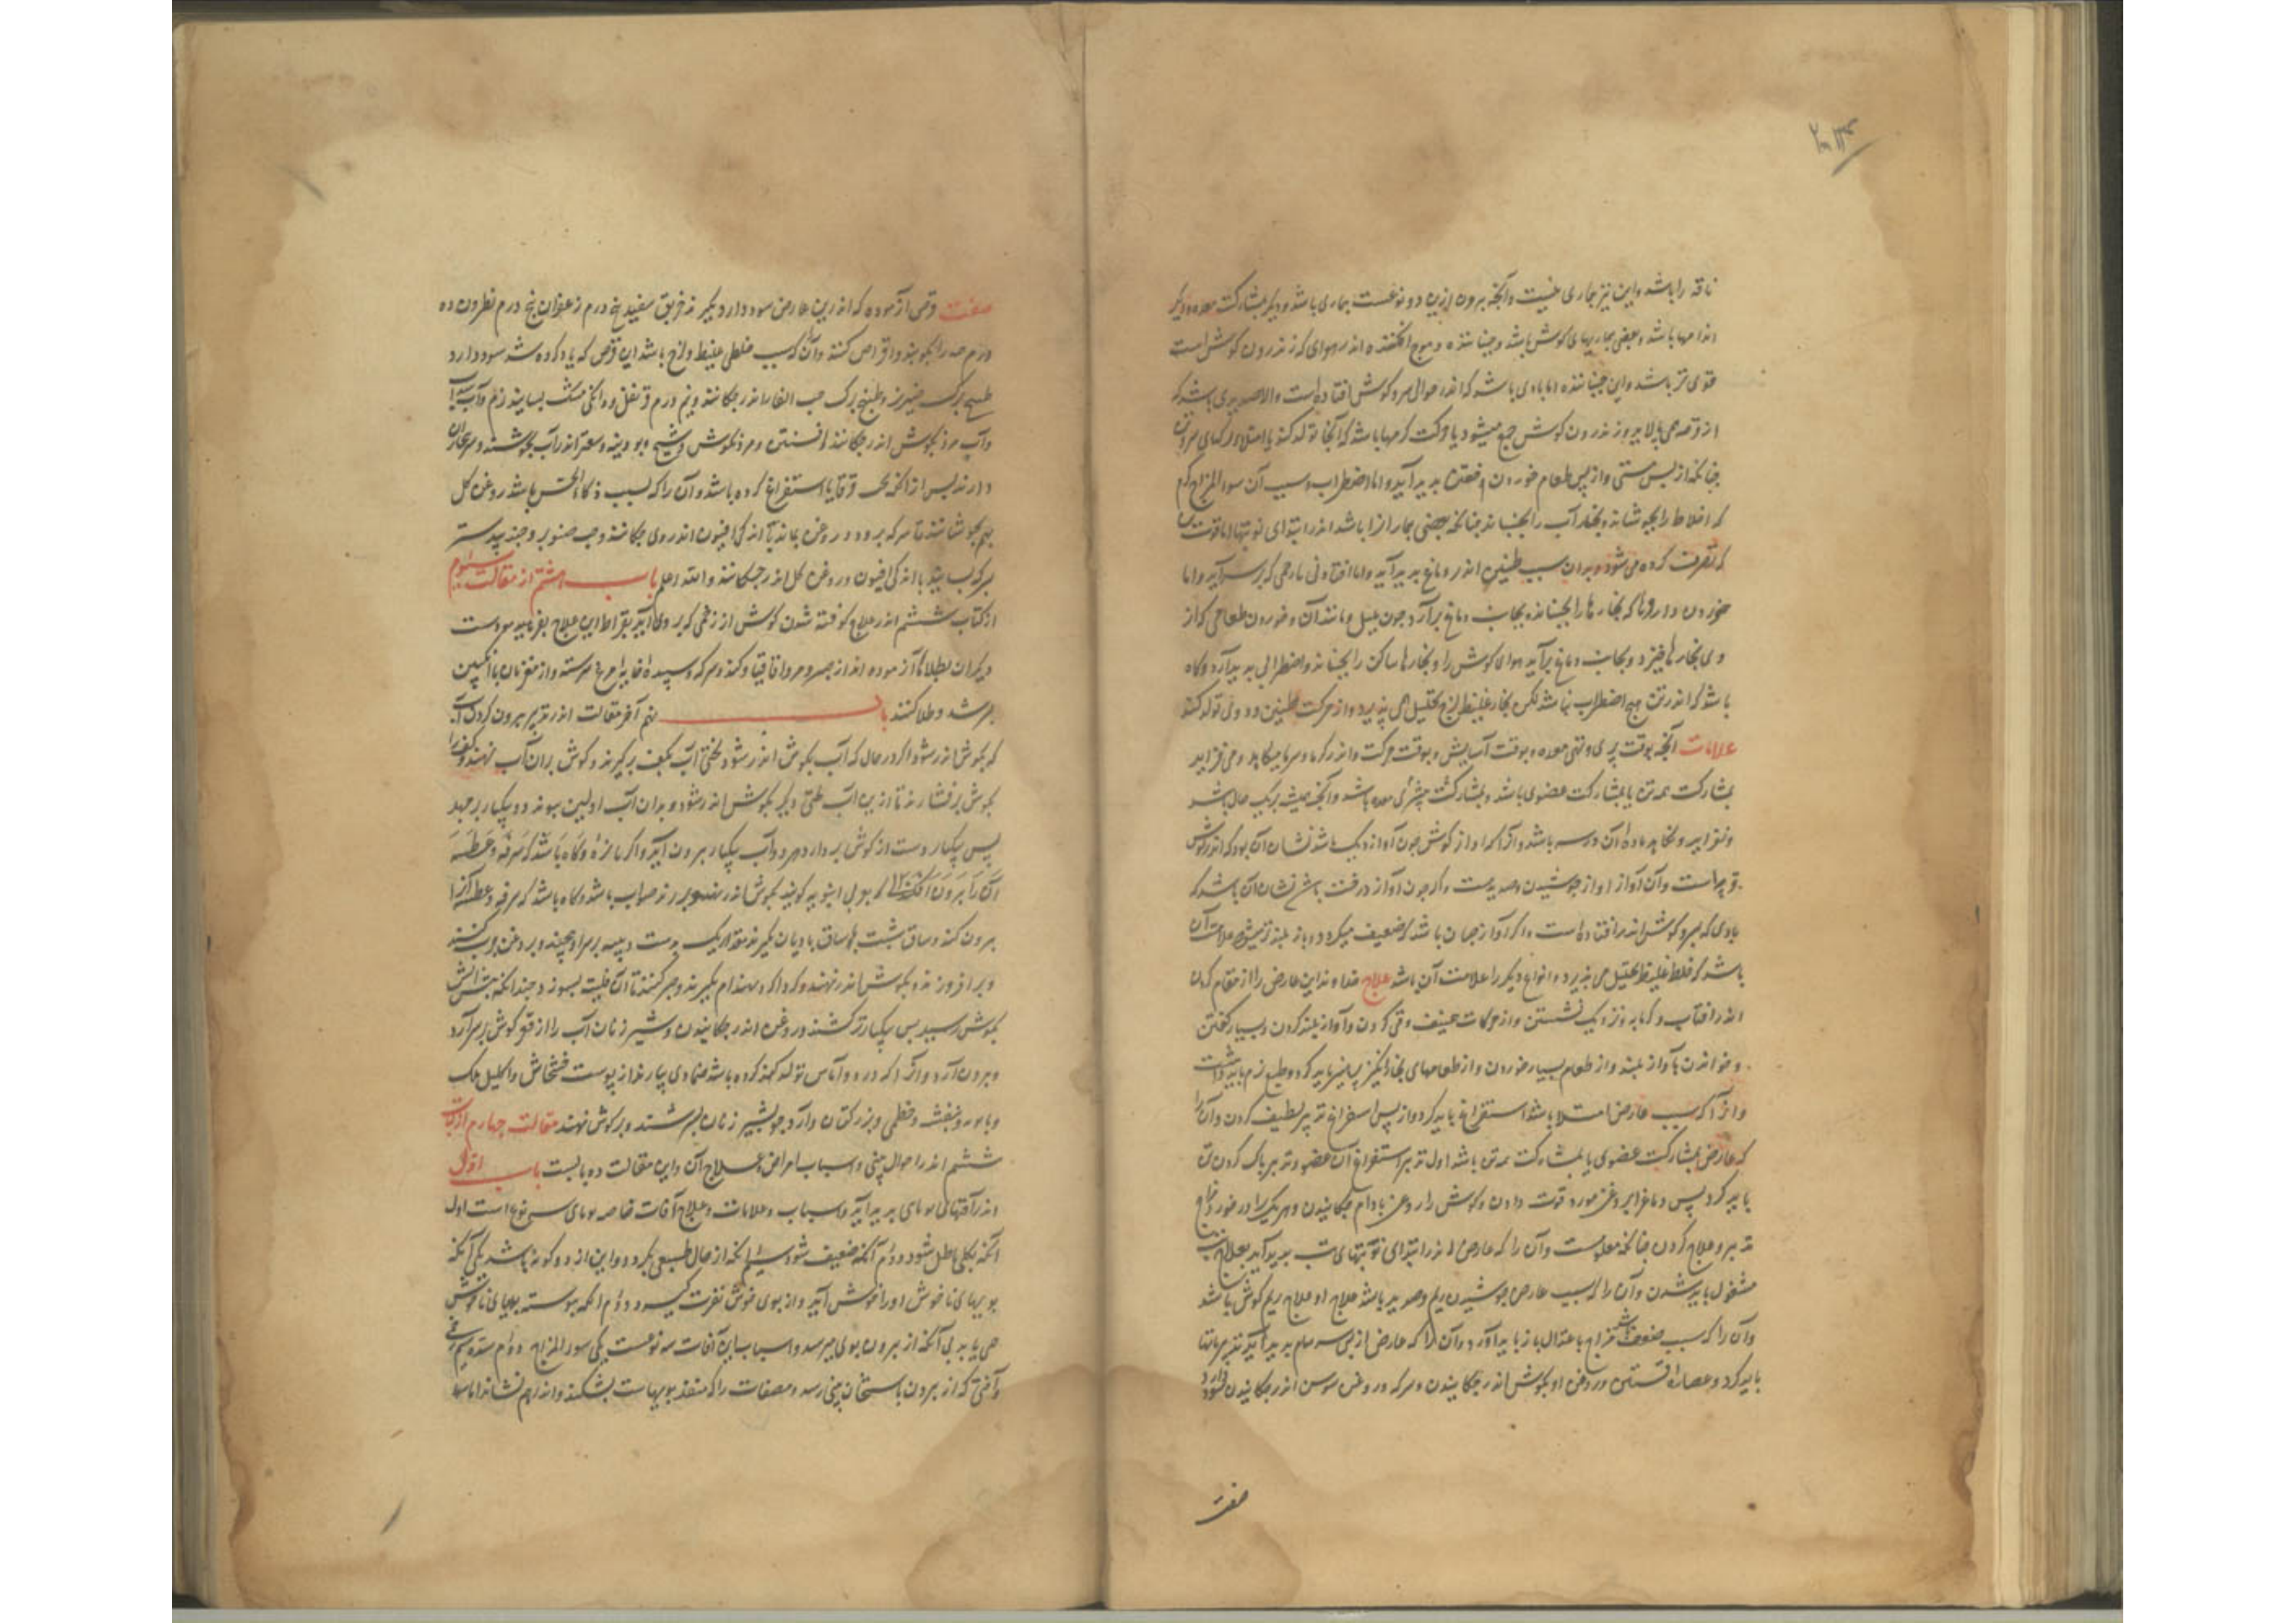 ناقه را باشد و این نیز بیماری نیست و آنچه بیرون ازین دو نوعست بیماری باشد و دیگر بمشارکت معده و دیگر
اندامها باشد و بعضی بیماریهای گوش باشد و جنباننده و موج افکننده اندر هوای که اندرون گوش است
قوی تر باشد و این جنباننده اما بادی باشد که اندر حوالی سر و گوش افتاده است و الا صدیدی باشد که
از قرحه می پالاید و اندرون گوش جمع میشود یا حرکت کرمها باشد که آنجا تولد کند یا امتلاء رگهای سر
چنانکه از پس مستی و از پس طعام خوردن و خفتن پدید آید و اما اضطراب و سبب آن سوء المزاج گرم
که اخلاط را بجوشاند و بخار آب را بجنباند چنانکه بعضی بیمارانرا باشد اندر ابتدای نوبتها اما قوت
که تصرف کرده می شود و بدان سبب طنین اندر دماغ پدید آید و اما افتادنی یا زخمی که بر سر آید و اما
خوردن داروها که بخارها را بجنباند بجانب دماغ برآرد چون بلبل و مانند آن و خوردن طعامی که از
وی بخارها خیزد و بجانب دماغ برآید هوای گوش را و بخارها ساکن را بجنباند و اضطرابی پدید آرد و گاه
باشد که اندر تن هیچ اضطراب نباشد لکن بخار غلیظ لزج تحلیل می پذیرد و از حرکت طنین و دوی تولد کند
علامات آنچه بوقت پری و تهی معده و بوقت آسایش و بوقت حرکت و اندر گرما و سرما میکاهد و می فزاید
بمشارکت همه تن یا بمشارکت عضوی باشد و بمشارکت بیشتری معده باشد و آنچه همیشه بریک حال باشد
و نفزاید و نکاهد ماده آن در سر باشد و آنرا که آواز گوش چون آواز دیگ باشد نشان آن بود که اندر گوش
قرحه است و آن آواز آواز جوشیدن صدیدست و اگر چون آواز درخت باشد نشان آن باشد که
بادی که بسر و گوش اندر افتاده است و اگر آواز چنان باشد که ضعیف میگردد و باز بلند تر میشود علامت آن
باشد که خلط غلیظ تحلیل می پذیرد و انواع دیگر را علامت آن باشد علاج خداوند این عارض را از مقام کردن
اندر آفتاب و گرمابه و نزدیک آتش نشستن و از حرکات عنیف و قی کردن و آواز بلند کردن و بسیار گفتن
و خواندن بآواز بلند و از طعام بسیار خوردن و از طعامهای بخارانگیز پرهیز باید کرد و طبع نرم باید داشت
و آنرا که سبب عارض امتلا باشد استفراغ باید کرد و از پس استفراغ تدبیر لطیف کردن و آن را
که عارض بمشارکت عضوی یا بمشارکت همه تن باشد اول تدبیر استفراغ آن عضو و تدبیر پاک کردن تن
باید کرد پس دماغ را بروغن مورد قوت دادن و گوش را روغن بادام چکانیدن و هر یک را در خور مزاج
تدبیر و علاج کردن چنانکه معلومست و آن را که عارض اندر ابتدای نوبتهای تب پدید آید بعلاج تب
مشغول باید شدن و آن را که سبب عارض جوشیدن ریم و صدید باشد علاج او علاج ریم گوش باشد
و آن را که سبب ضعف باشد مزاج باعتدال باز باید آورد و آن را که عارض از پس سرسام پدید آید تدبیر
باید کرد و عصاره افسنتین و روغن او بگوش اندر چکانیدن و سرکه و روغن سوسن اندر چکانیدن سود دارد
صفت
صفت قرصی آزموده که اندرین عارض سود دارد بگیرند خربق سفید پنج درم زعفران پنج درم نطرون ده
درم همه را بکوبند و اقراص کنند و آن که سبب خلطی غلیظ و لزج باشد این قرص که یاد کرده شد سود دارد
طبیخ برگ و طبیخ برگ حب الغار اندر چکانند و نیم درم قرنفل و دانگی مشک بسایند
و آب مرزنگوش اندر چکانند افسنتین و مرزنگوش و شیح و پودینه و سعتر اندر آب بجوشند و سر بخار آن
دارند پس از آنکه بحب قوقایا استفراغ کرده باشد و آن را که بسبب ذکاء الحس باشد روغن گل
بهم بجوشانند تا سرکه برود و روغن بماند پس اندکی افیون اندر وی چکانند و حب صنوبر و جندبیدستر
بسرکه بسایند با اندکی افیون و روغن گل اندر چکانند و الله اعلم باب هشتم از مقالت سوم
از کتاب ششم اندر علاج کوفته شدن گوش از زخمی که بر وی آید بقراط این علاج بفرماید
دیگران بطلاها آزموده اند از صبر و مر و اقاقیا و کندر و سرکه و سپیده خایه مرغ سرشته و از مغز نان با انگبین
سرشند و طلا کنند باب نهم آخر مقالت اندر تدبیر بیرون کردن آب
که بگوش اندر شود اگر در حال که آب بگوش اندر شود لختی آب بکف برگیرند و گوش بران آب نهند و کف را
بگوش برفشارند تا ازین آب لختی دیگر بگوش اندر شود و بدان آب اولین پیوندد و یکبار برجهد
پس یکبار دست از گوش بردارد هر دو آب یکبار بیرون آید و اگر باز نه و گاه باشد که سرفه و عطسه
آن را بیرون افکند انبوبه گویند بگوش اندر صواب باشد و گاه باشد که سرفه و عطسه آنرا
بیرون کند و ساق شبت یا ساق بادیان بگیرند مقدار یک بدست و پنبه بر سر او پیچند و بروغن چرب کنند
و برافروزند و بگوش اندر نهند و گرداگرد بهندام بگیرند و صبر کنند تا آن فتیله بسوزد چندانکه آتش
بگوش رسد پس یکبار برکشند و روغن اندر چکانیدن و شیر زنان آب را از قعر گوش بر سر آرد
و بیرون آرد و آنرا که درد و آماس تولد کرده باشد ضمادی سازند از پوست خشخاش و اکلیل ملک
و بابونه و بنفشه و خطمی و بزر کتان و آرد جو بشیر زنان بسرشند و بر گوش نهند مقالت چهارم از کتاب
ششم اندر احوال بینی و اسباب امراض و علاج آن و این مقالت ده بابست باب اول
اندر آفتهای که بویائی پدید آید و اسباب و علامات و علاج آفات خاصه بویائی سه نوع است اول
آنکه بکلی باطل شود دوم آنکه ضعیف شود سیم آنکه از حال طبیعی بگردد و این از دو گونه باشد یکی آنکه
بویهای ناخوش او را خوش آید و از بوی خوش نفرت گیرد دوم آنکه پیوسته بویهای ناخوش
می یابد بی آنکه از بیرون بوی میرسد و اسباب این آفات سه نوعست یکی سوء المزاج دوم سده سیم
و آفتی که از بیرون باستخوان بینی رسد و مصفات را که منفذ بویهاست بشکند و اندر هم نشاند اما